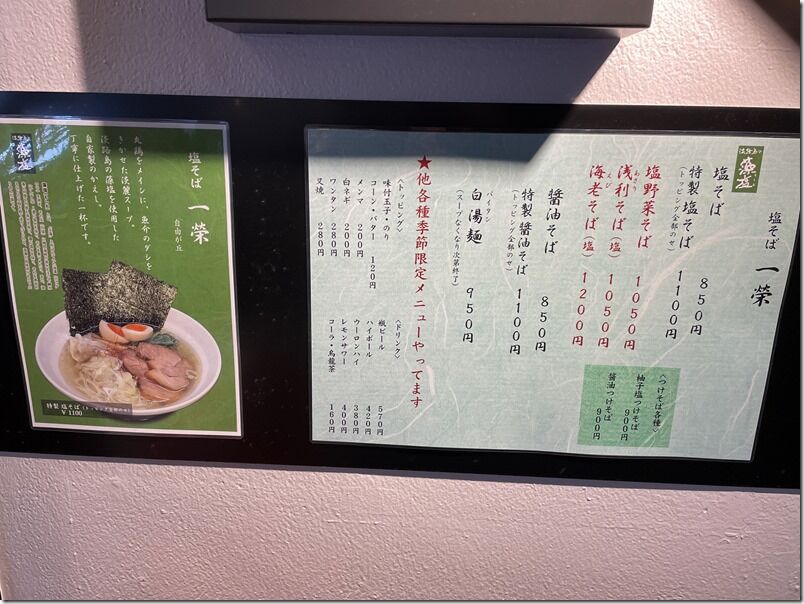 淡路島の
藻塩
塩そば 一榮
自由が丘
丸鶏をメインに、魚介のダシを
きかせた淡麗スープ。
淡路島の藻塩を使用した
自家製のかえし。
丁寧に仕上げた一杯です。
特製 塩そば(トッピング全部のせ)
¥1100
淡路島の
藻塩
塩そば 一榮
塩そば 850円
特製塩そば 1100円
(トッピング全部のせ)
塩野菜そば 1050円
あさり
浅利そば(塩) 1050円
えび
海老そば(塩) 1200円
醤油そば 850円
特製醤油そば 1100円
(トッピング全部のせ)
パイタン
白湯麺 950円
(スープなくなり次第終了)
〈つけそば各種〉
柚子塩つけそば
900円
醤油つけそば
900円
★他各種季節限定メニューやってます
〈トッピング〉
味付玉子・のり
コーン・バター 120円
メンマ 200円
白ネギ 200円
ワンタン 280円
叉焼 280円
〈ドリンク〉
瓶ビール 570円
ハイボール 420円
ウーロンハイ 380円
レモンサワー 400円
コーラ・烏龍茶 160円